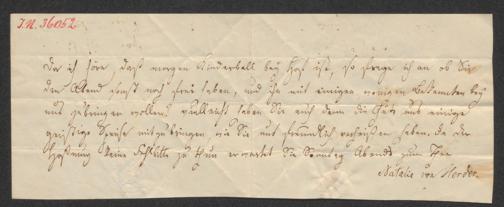 I.N. 36052
Da ich höre, daß morgen Kinderball bey Hof ist, so frage ich an ob Sie
den Abend sonst noch frei haben, und ihn mit einigen wenigen Bekannten bey
mir zubringen wollen? Vielleicht haben Sie auch denn die Güte mir einige
geistige Speise mitzubringen, die Sie mir freundlich verheißen haben. In der
Hoffnung keine Fehlbitte zu thun erwartet Sie Sonntag Abends zum Thee
Natalie von Herder.